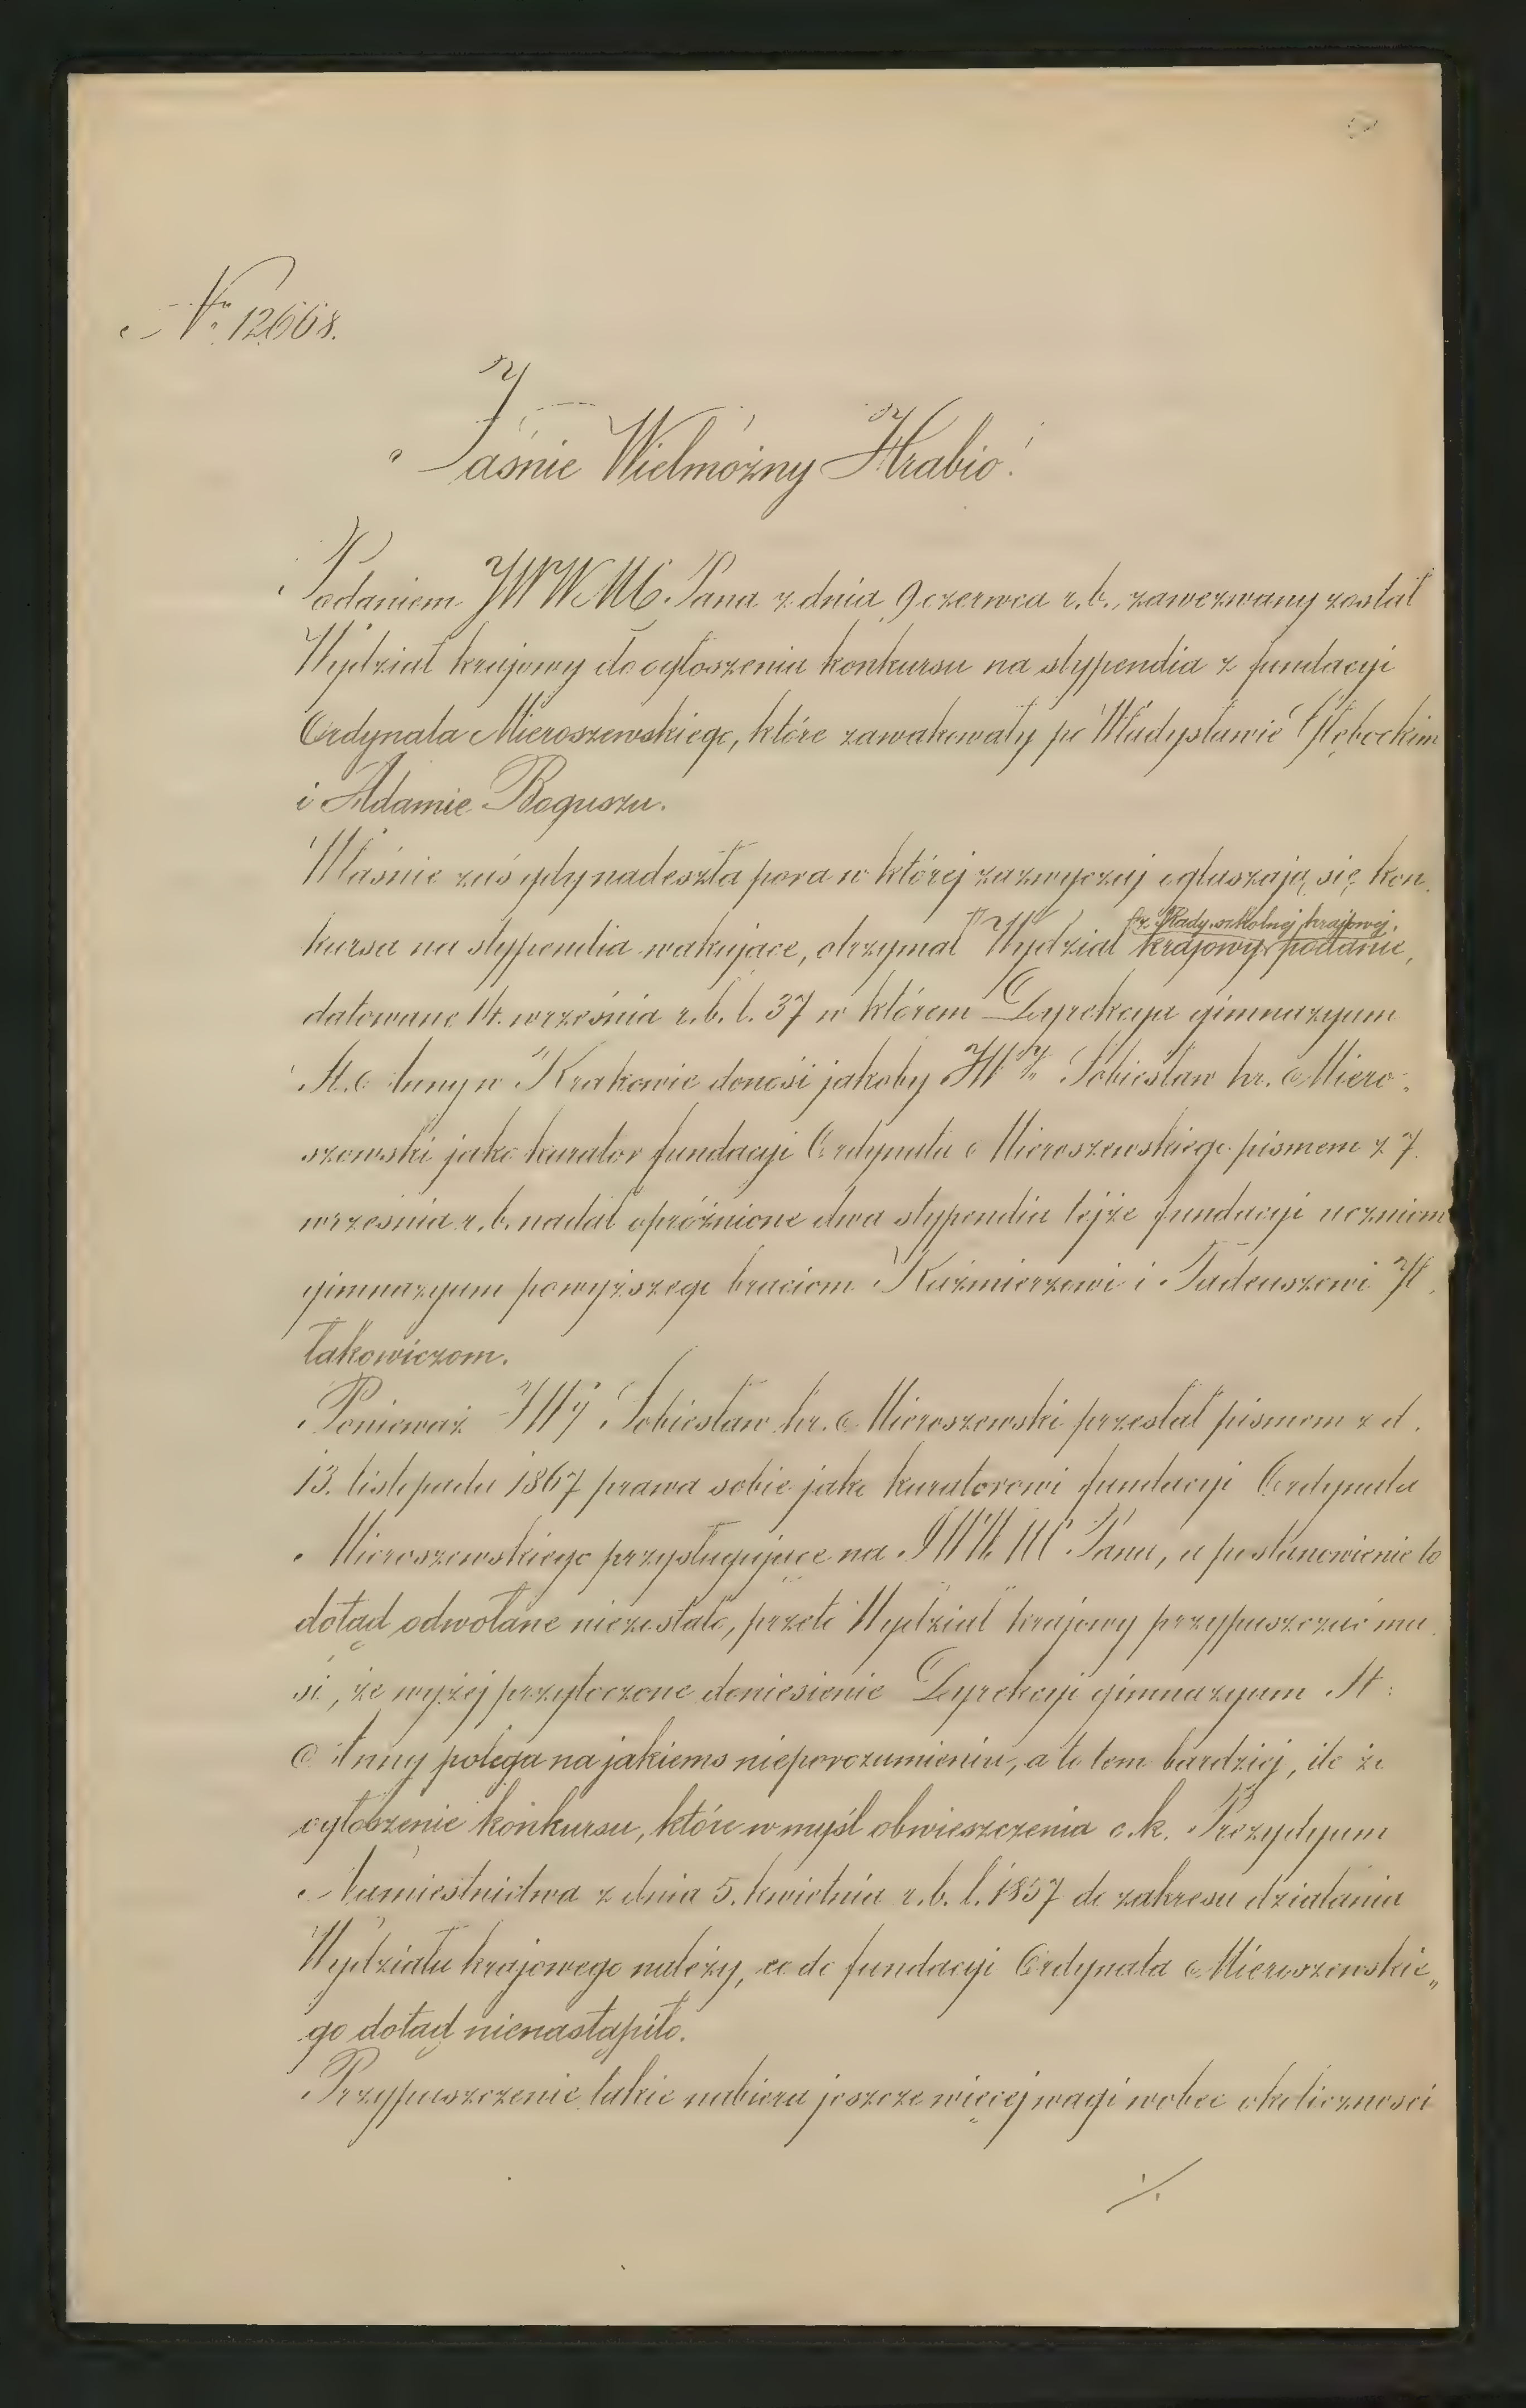 Nr. 12668.
Jaśnie Wielmożny Hrabio!
Podaniem JWWMC. Pana z dnia 9 czerwca r. b., zawezwany został
Wydział krajowy do ogłoszenia konkursu na stypendia z fundacyi
Ordynata Mieroszewskiego, które zawakowały po Władysławie Głębockim
i Adamie Boguszu.
Właśnie zaś gdy nadeszła pora w której zazwyczaj ogłaszają się kon-
kursa na stypendia wakujące, otrzymał Wydział krajowy podanie,
z Rady szkolnej krajowej
datowane 14. września r. b. l. 37 w którem Dyrekcya gimnazyum
St. Anny w Krakowie donosi jakoby JW Sobiesław hr. Miero-
szowski jako kurator fundacyi Ordynata Mieroszewskiego pismem z 7.
września r. b. nadał opróżnione dwa stypendia tejże fundacyi uczniom
gimnazyum powyższego braciom Kaźmierzowi i Tadeuszowi
łakowiczom.
Ponieważ JW Sobiesław hr. Mieroszewski przestał pismem z d.
13. listopada 1867 prawa sobie jako kuratorowi fundacyi Ordynata
Mieroszewskiego przysługujące na JWWMC Pana, a postanowienie to
dotąd odwołane niezostało, przeto Wydział krajowy przypuszczać mu-
si, że wyżej przytoczone doniesienie Dyrekcyi gimnazyum St:
Anny polega na jakiems nieporozumieniu, a to tem bardziej, ile że
ogłoszenie konkursu, które w myśl obwieszczenia c. k. Prezydyum
Namiestnictwa z dnia 5. kwietnia r. b. l. 1857 do zakresu działania
Wydziału krajowego należy, co do fundacyi Ordynata Mieroszewskie„
go dotąd nienastąpiło.
Przypuszczenie takie nabiera jeszcze więcej wagi wobec okoliczności
./.